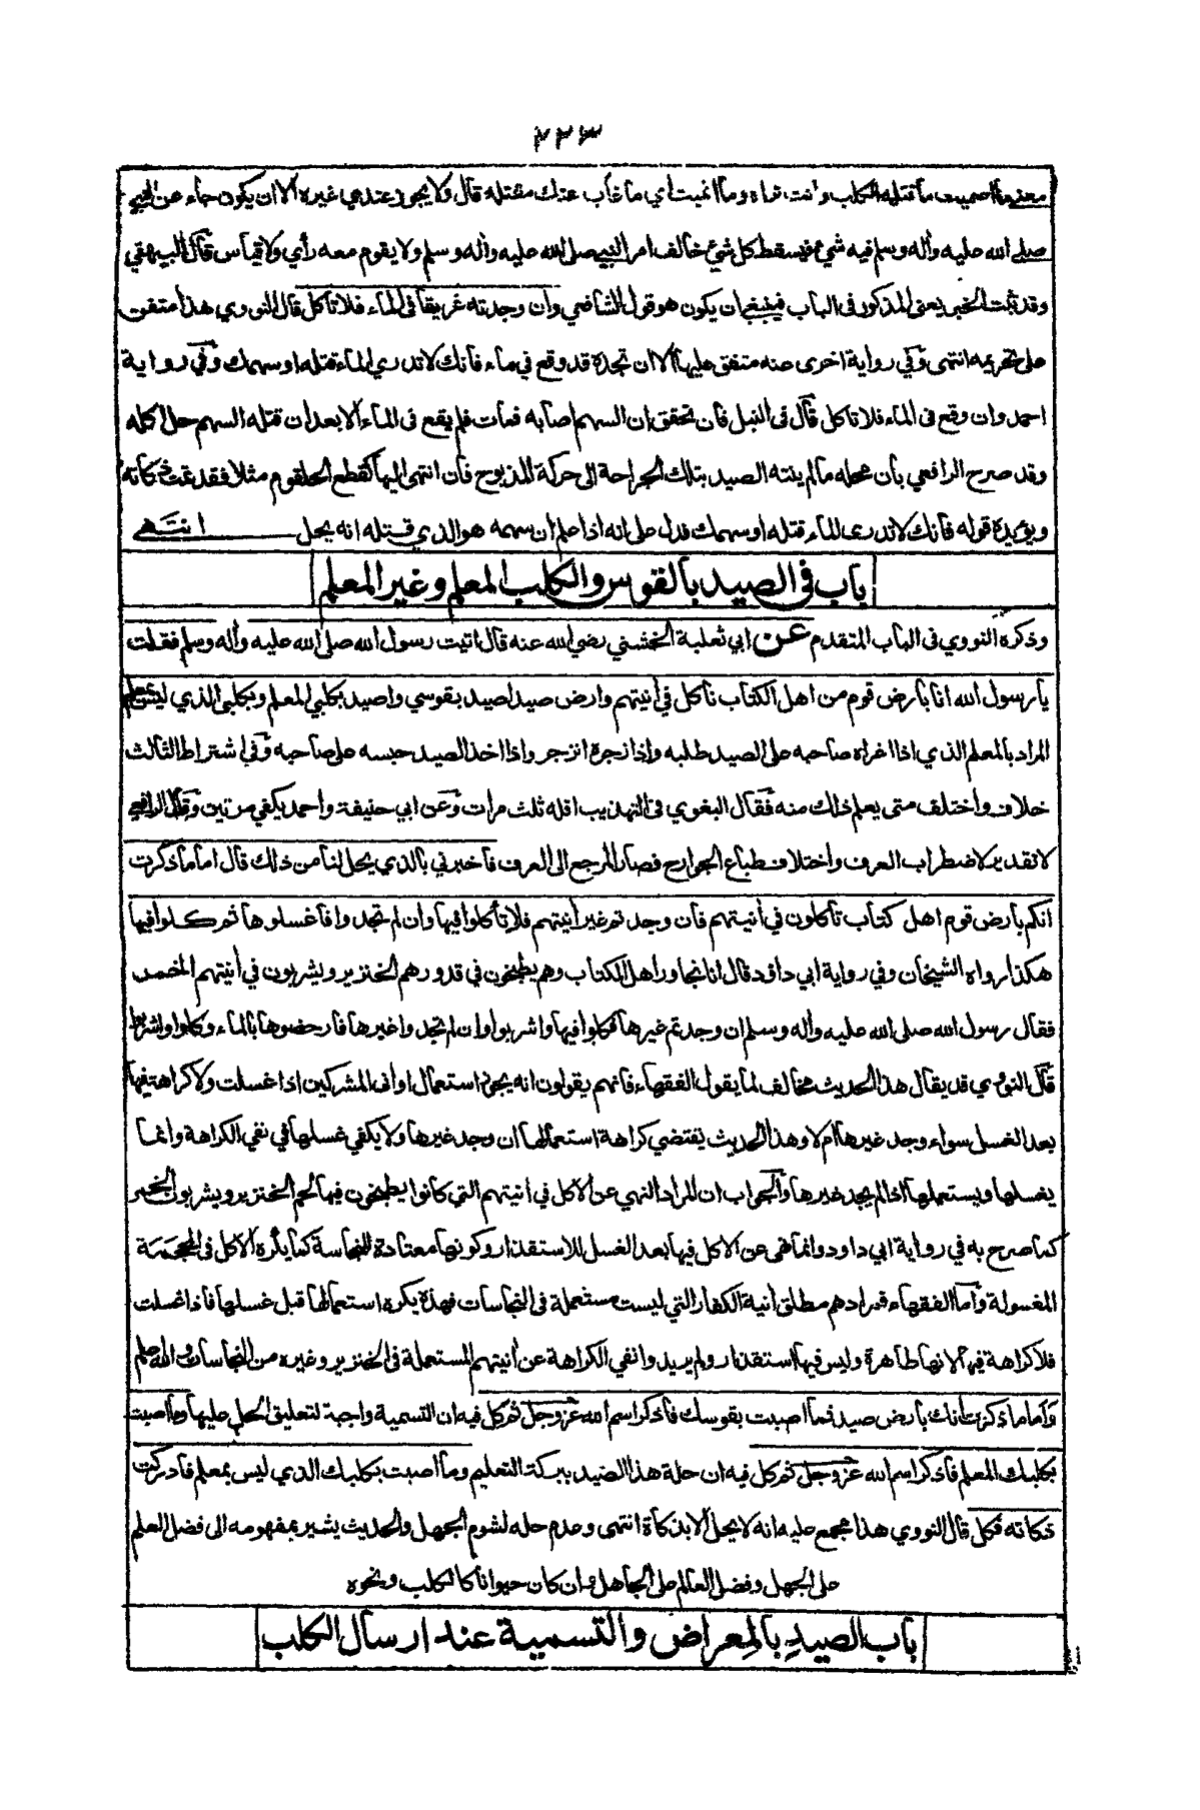 ٢٢٣
معنى ما اصميت ما قتله الكلب وانت تراه وما انميت اي ما غاب عنك مقتله قال ولا يجوز عندي غيره الا ان يكون جاء عن النبي
صلى الله عليه وأله وسلم فيه شيء فيسقط كل شيء خالف امر النبي صلى الله عليه وأله وسلم ولا يقوم معه رأي ولا قياس قال البيهقي
وقد ثبت الخبر يعني المذكور في الباب فينبغي ان يكون هو قول الشافعي وان وجدته غريقا في الماء فلا تاكل قال النووي هذا متفق
على تحريمه انتهى وفي رواية اخرى عنه متفق عليها الا ان تجده قد وقع في ماء فانك لا تدري الماء قتله او سهمك وفي رواية
احمد وان وقع في الماء فلا تاكل قال في النيل فان تحقق ان السهم اصابه فمات فلم يقع في الماء الا بعد ان قتله السهم حل اكله
وقد صرح الرافعي بان محله ما لم ينته الصيد بتلك الجراحة الى حركة المذبوح فان انتهى اليها كقطع الحلقوم مثلا فقد تمت ذكاته
ويؤيده قوله فانك لا تدري الماء قتله او سهمك فدل على انه اذا علم ان سهمه هو الذي قتله انه يحل انتهى
باب في الصيد بالقوس والكلب المعلم وغير المعلم
وذكره النووي في الباب المتقدم عن ابي ثعلبة الخشني رضي الله عنه قال اتيت رسول الله صلى الله عليه وأله وسلم فقلت
يا رسول الله انا بارض قوم من اهل الكتاب نأكل في أنيتهم وارض صيد اصيد بقوسي واصيد بكلبي المعلم وبكلبي الذي ليس بمعلم
المراد بالمعلم الذي اذا اغراه صاحبه على الصيد طلبه واذا زجره انزجر واذا اخذ الصيد حبسه على صاحبه وفي اشتراط الثالث
خلاف واختلف متى يعلم ذلك منه فقال البغوي في التهذيب اقله ثلث مرات وعن ابي حنيفة واحمد يكفي مرتين وقال الرافعي
لا تقدير لاضطراب العرف واختلاف طباع الجوارح فصار المرجع الى العرف فأخبرني بالذي يحل لنا من ذلك قال اما ما ذكرت
انكم بارض قوم اهل كتاب تأكلون في أنيتهم فان وجدتم غير أنيتهم فلا تأكلوا فيها وان لم تجدوا فاغسلوها ثم كلوا فيها
هكذا رواه الشيخان وفي رواية ابي داود قال انا نجاور اهل الكتاب وهم يطبخون في قدورهم الخنزير ويشربون في أنيتهم الخمر
فقال رسول الله صلى الله عليه وأله وسلم ان وجدتم غيرها فكلوا فيها واشربوا وان لم تجدوا غيرها فارحضوها بالماء وكلوا واشربوا
قال النووي قد يقال هذا الحديث مخالف لما يقول الفقهاء فانهم يقولون انه يجوز استعمال اواني المشركين اذا غسلت ولا كراهة فيها
بعد الغسل سواء وجد غيرها ام لا وهذا الحديث يقتضي كراهة استعمالها ان وجد غيرها ولا يكفي غسلها في نفي الكراهة وانما
يغسلها ويستعملها اذا لم يجد غيرها والجواب ان المراد النهي عن الاكل في أنيتهم التي كانوا يطبخون فيها لحم الخنزير ويشربون الخمر
كما صرح به في رواية ابي داود وانما نهى عن الاكل فيها بعد الغسل للاستقذار وكونها معتادة للنجاسة كما يكره الاكل في المحجمة
المغسولة واما الفقهاء فمرادهم مطلق أنية الكفار التي ليست مستعملة في النجاسات فهذه يكره استعمالها قبل غسلها فاذا غسلت
فلا كراهة فيها لانها طاهرة وليس فيها استقذار ولم يريدوا نفي الكراهة عن أنيتهم المستعملة في الخنزير وغيره من النجاسات والله اعلم
واما ما ذكرت انك بارض صيد فما اصبت بقوسك فاذكر اسم الله عز وجل ثم كل فيه ان التسمية واجبة لتعليق الحل عليها وما اصبت
بكلبك المعلم فاذكر اسم الله عز وجل ثم كل فيه ان حلة هذا الصيد ببركة التعليم وما اصبت بكلبك الذي ليس بمعلم فادركت
ذكاته فكل قال النووي هذا مجمع عليه انه لا يحل الا بذكاة انتهى وعدم حله لشوم الجهل والحديث يشير بمفهومه الى فضل العلم
على الجهل وفضل العالم على الجاهل وان كان حيوانا كالكلب ونحوه
باب الصيد بالمعراض والتسمية عند ارسال الكلب